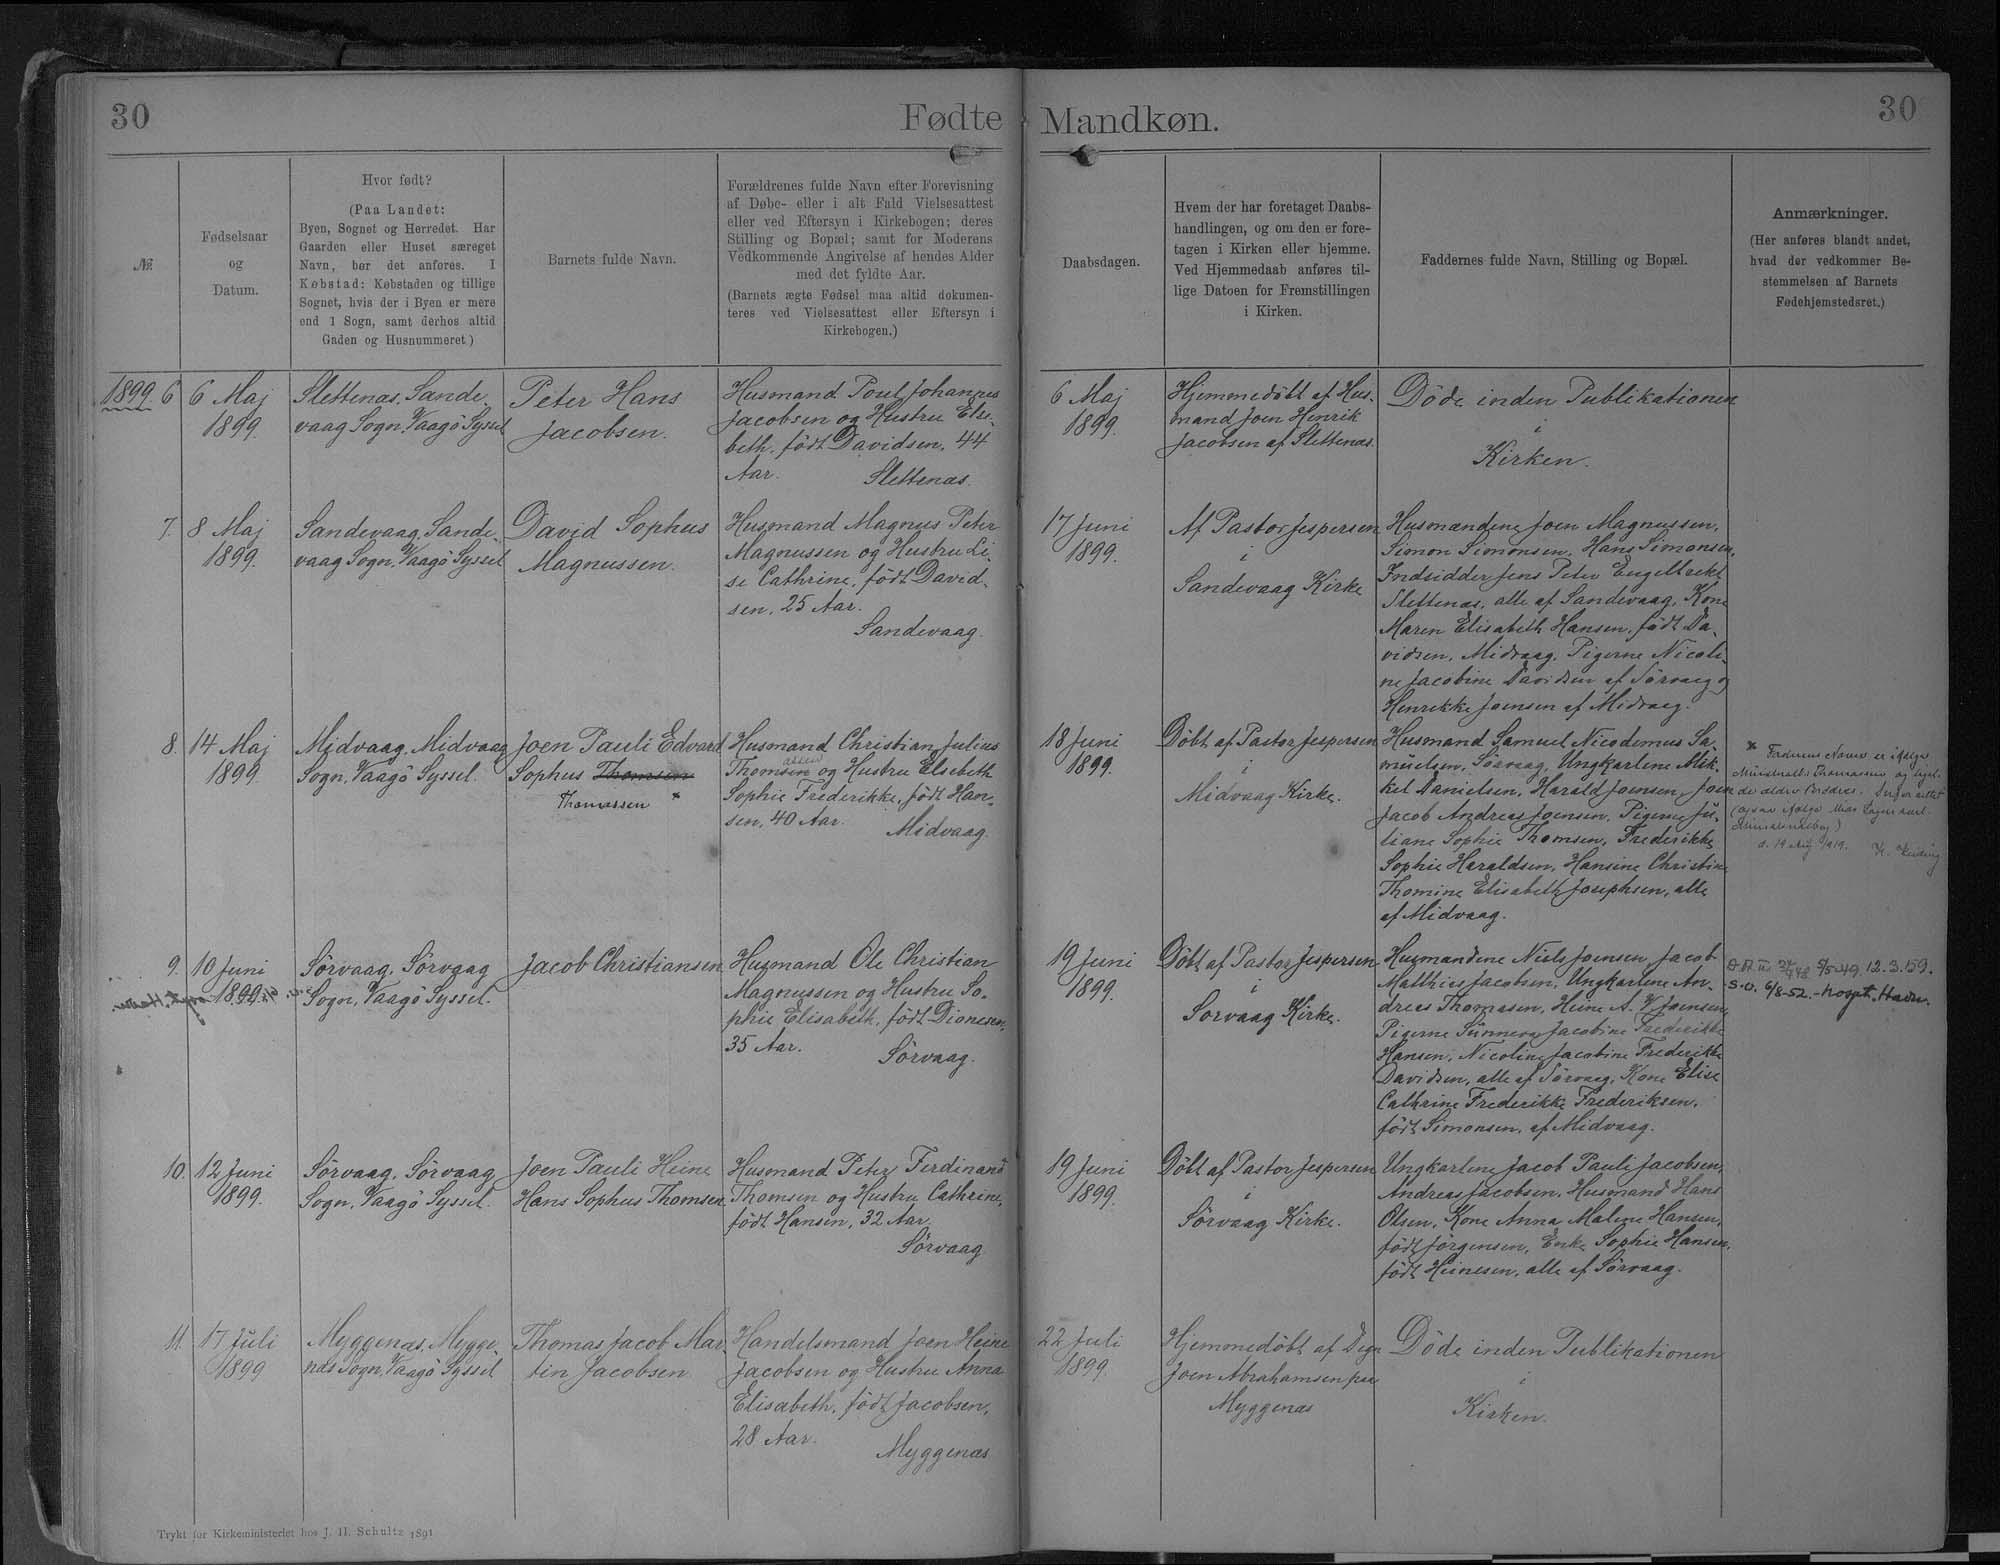 30
Fødte
Mandkøn.
30
№
Fødselsaar
og
Datum.
Hvor født?
(Paa Landet:
Byen, Sognet og Herredet. Har
Gaarden eller Huset særeget
Navn, bør det anføres. I
Købstad: Købstaden og tillige
Sognet, hvis der i Byen er mere
end 1 Sogn, samt derhos altid
Gaden og Husnummeret)
Barnets fulde Navn.
Forældrenes fulde Navn efter Forevisning
af Døbe- eller i alt Fald Vielsesattest
eller ved Eftersyn i Kirkebogen; deres
Stilling og Bopæl; samt for Moderens
Vedkommende Angivelse af hendes Alder
med det fyldte Aar.
(Barnets ægte Fødsel maa altid dokumen-
teres ved Vielsesattest eller Eftersyn i
Kirkebogen.)
Daabsdagen.
Hvem der har foretaget Daabs-
handlingen, og om den er fore-
tagen i Kirken eller hjemme.
Ved Hjemmedaab anføres til-
lige Datoen for Fremstillingen
i Kirken.
Faddernes fulde Navn, Stilling og Bopæl.
Anmærkninger.
(Her anføres blandt andet,
hvad der vedkommer Be-
stemmelsen af Barnets
Fødehjemstedsret.)
1899. 6
6 Maj
1899.
Slettenæs, Sande-
vaag Sogn, Vaagö Syssel
Peter Hans
Jacobsen.
Husmand Poul Johannes
Jacobsen og Hustru Else-
beth, født Davidsen, 44
Aar.
Slettenæs.
6 Maj
1899.
Hjemmedöbt af Hus-
mand Joen Henrik
Jacobsen af Slettenæs.
Döde inden Publikationen
i
Kirken.
7.
8 Maj
1899.
Sandevaag, Sande-
vaag Sogn, Vaagö Syssel
David Sophus
Magnussen.
Husmand Magnus Peter
Magnussen og Hustru Li-
se Cathrine, født David-
sen, 25 Aar.
Sandevaag.
17 Juni
1899.
Af Pastor Jespersen
i
Sandevaag Kirke
Husmændene Joen Magnussen,
Simon Simonsen, Hans Simonsen,
Indsidder Jens Peter Engelbrekt
Slettenæs, alle af Sandevaag, Kone
Maren Elisabeth Hansen, født Da-
vidsen, Midvaag, Pigerne Nicoli-
ne Jacobine Davidsen af Sörvaag og
Henrikke Joensen af Midvaag.
8.
14 Maj
1899.
Midvaag, Midvaag
Sogn, Vaagö Syssel.
Joen Pauli Edvard
Sophus Thomsen
Thomassen *
Husmand Christian Julius
Thomsen og Hustru Elsebeth
Sophie Frederikke, født Han-
sen, 40 Aar.
Midvaag.
18 Juni
1899.
Döbt af Pastor Jespersen
i
Midvaag Kirke.
Husmand Samuel Nicodemus Sa-
muelsen, Sörvaag, Ungkarlene Mik-
kel Danielsen, Harald Joensen, Joen
Jacob Andreas Joensen, Pigerne Ju-
liane Sophie Thomsen, Frederikke
Sophie Haraldsen, Hansine Christine
Thomine Elisabeth Josephsen, alle
af Midvaag.
* Faderens Navn er ifølge
Thomassen og
9.
10 Juni
1899.
Sörvaag, Sörvaag
Sogn, Vaagö Syssel.
Jacob Christiansen
Husmand Ole Christian
Magnussen og Hustru So-
phie Elisabeth, født Dionesen,
35 Aar.
Sörvaag.
19 Juni
1899.
Döbt af Pastor Jespersen
i
Sörvaag Kirke.
Husmændene Niels Joensen, Jacob
Matthias Jacobsen, Ungkarlene An-
dreas Thomasen, Heine A. V. Joensen,
Pigerne Sunneva Jacobine Frederikke
Hansen, Nicoline Jacobine Frederikke
Davidsen, alle af Sörvaag, Kone Elise
Cathrine Frederikke Frederiksen,
født Simonsen, af Midvaag.
12.3.159.
S.v. 6/8-52. - Hospt. Havn.
10.
12 Juni
1899.
Sörvaag, Sörvaag
Sogn, Vaagö Syssel.
Joen Pauli Heine
Hans Sophus Thomsen
Husmand Peter Ferdinand
Thomsen og Hustru Cathrine,
født Hansen, 32 Aar.
Sörvaag
19 Juni
1899.
Döbt af Pastor Jespersen
i
Sörvaag Kirke.
Ungkarlene Jacob Pauli Jacobsen,
Andreas Jacobsen, Husmand Hans
Olsen, Kone Anna Malene Hansen,
født Jörgensen, Enke Sophie Hansen,
født Heinesen, alle af Sörvaag.
11.
17 Juli
1899
Myggenæs, Mygge-
næs Sogn, Vaagö Syssel
Thomas Jacob Mar-
tin Jacobsen
Handelsmand Joen Heine
Jacobsen og Hustru Anna
Elisabeth, født Jacobsen,
28 Aar.
Myggenæs
22 Juli
1899.
Hjemmedöbt af Degn
Joen Abrahamsen paa
Myggenæs
Döde inden Publikationen
i
Kirken.
Trykt for Kirkeministeriet hos J. H. Schultz 1891